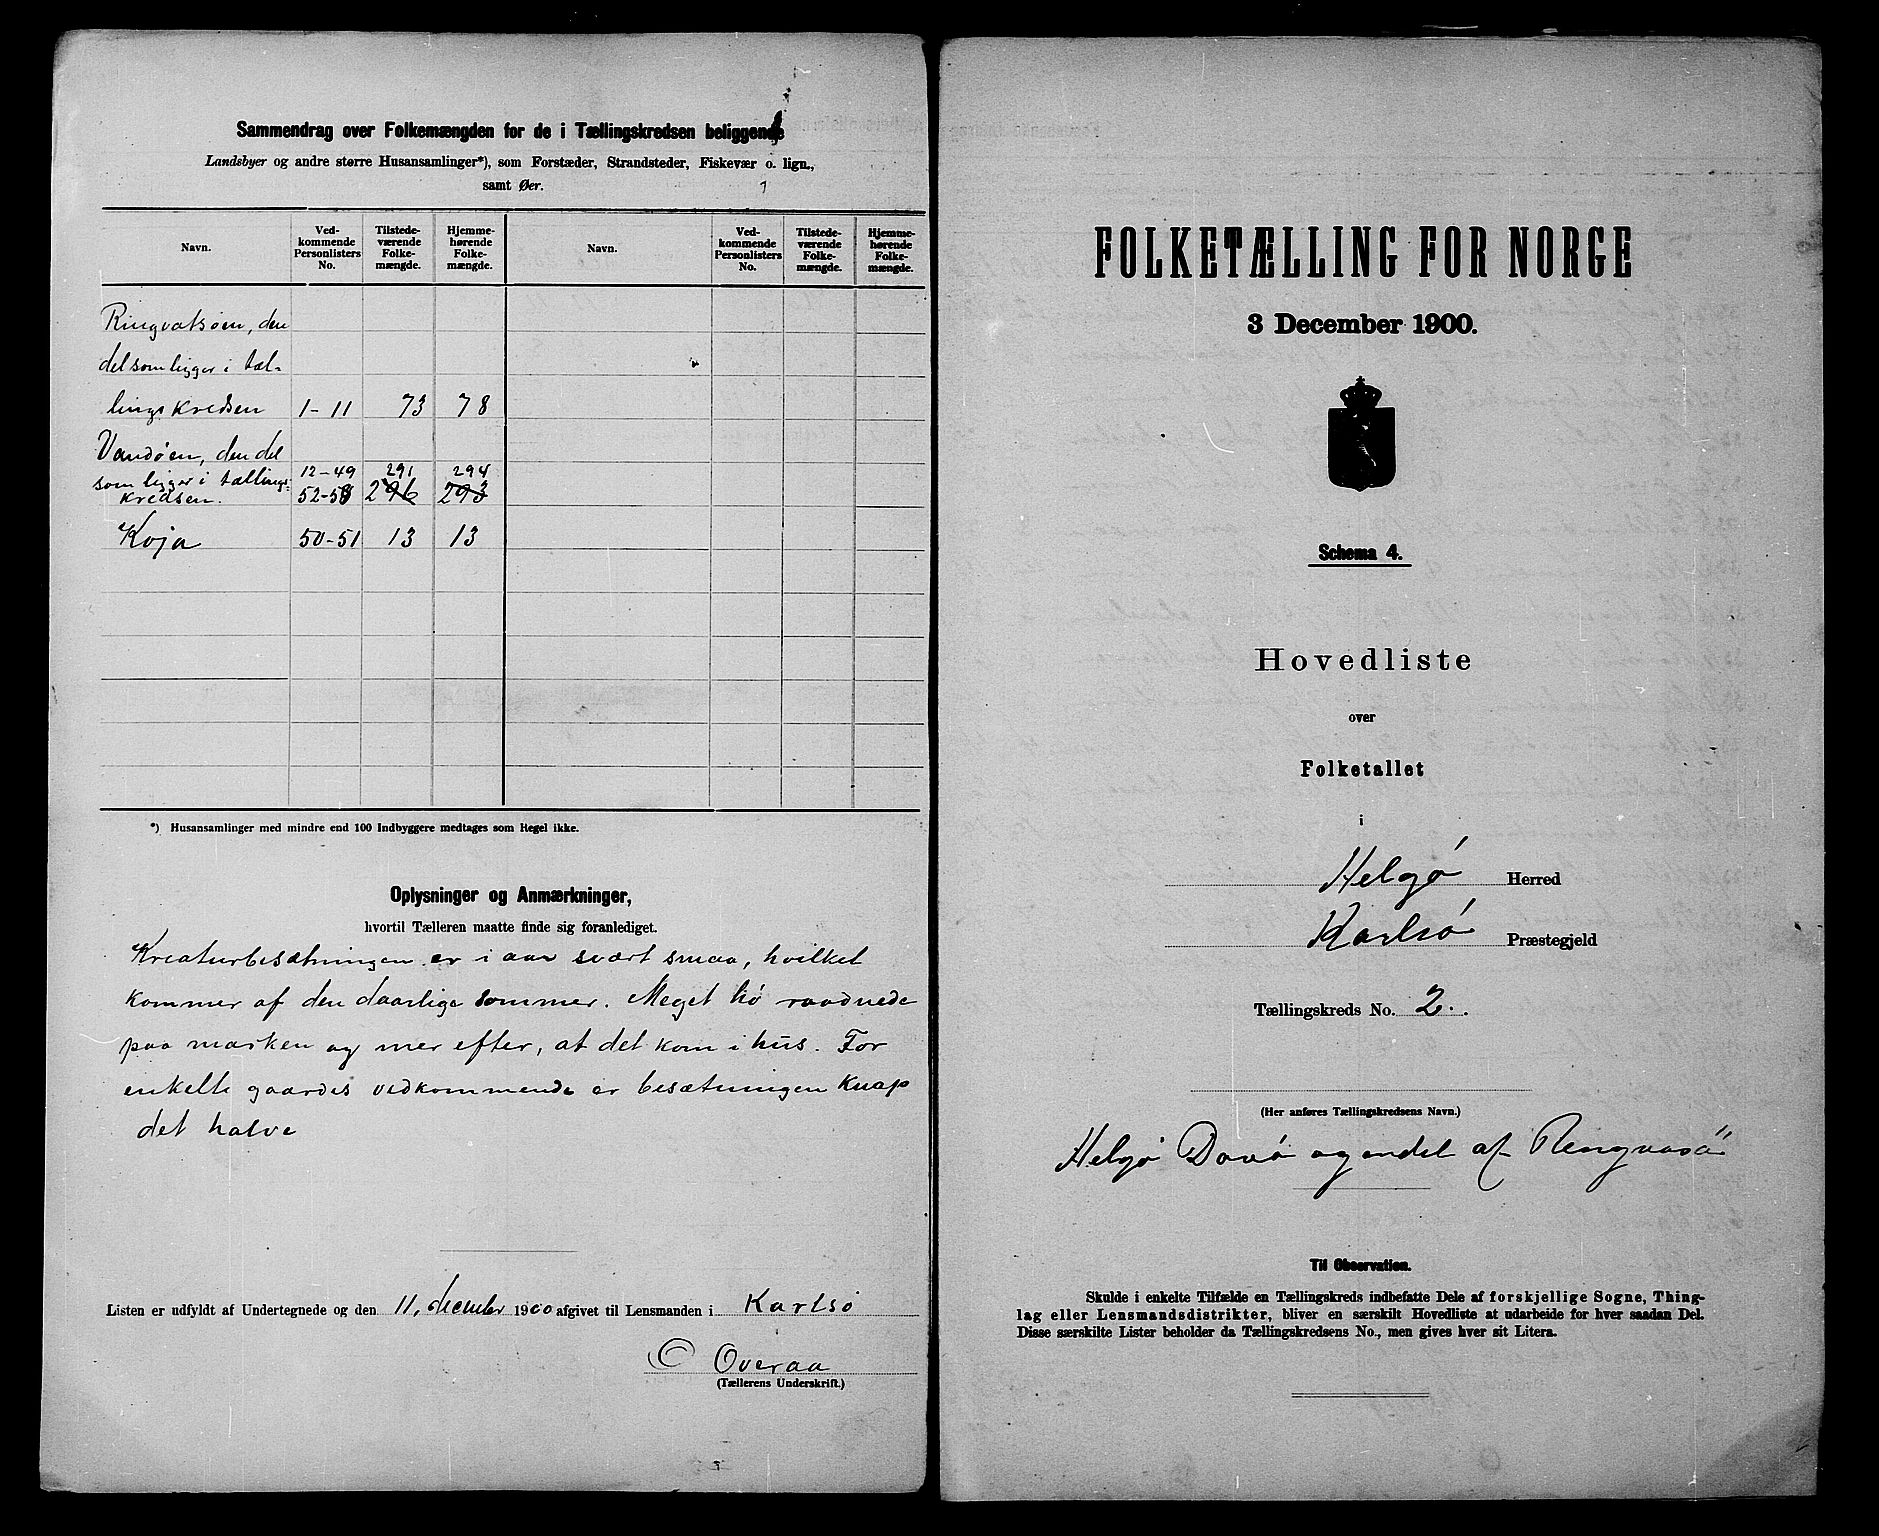 Sammendrag over Folkemængden for de i Tællingskredsen beliggende
Landsbyer og andre større Husansamlinger*), som Forstæder, Strandsteder, Fiskevær o. lign.,
samt Øer.
Navn. Ved-kommende Personlisters No. Tilstede-værende Folke-mængde. Hjemme-hørende Folke-mængde. Navn. Ved-kommende Personlisters No. Tilstede-værende Folke-mængde. Hjemme-hørende Folke-mængde.
Ringvatsøen, den
del som ligger i tæl-
lings kredsen 1-11 73 78
Vandøen, den del
som ligger i tællings- 12-49 291 294
kredsen. 52-58 296 293
Koja 50-51 13 13
*) Husansamlinger med mindre end 100 Indbyggere medtages som Regel ikke.
Oplysninger og Anmærkninger,
hvortil Tælleren maatte finde sig foranlediget.
Kreaturbesætningen er i aar svært smaa, hvilket
kommer af den daarlige sommer. Meget hö raadnede
paa marken og mer efter, at det kom i hus. For
enkelte gaardes vedkommende er besætningen knap
det halve
Listen er udfyldt af Undertegnede og den 11. december 1900 afgivet til Lensmanden i Karlsö
C Overaa
(Tællerens Underskrift.)
FOLKETÆLLING FOR NORGE
3 December 1900.
Schema 4.
Hovedliste
over
Folketallet
i
Helgö Herred
Karlsö Præstegjeld
Tællingskreds No. 2.
(Her anføres Tællingskredsens Navn.)
Helgö og endel af
Til Observation.
Skulde i enkelte Tilfælde en Tællingskreds indbefatte Dele af forskjellige Sogne, Thing-
lag eller Lensmandsdistrikter, bliver en særskilt Hovedliste at udarbeide for hver saadan Del.
Disse særskilte Lister beholder da Tællingskredsens No., men gives hver sit Litera.